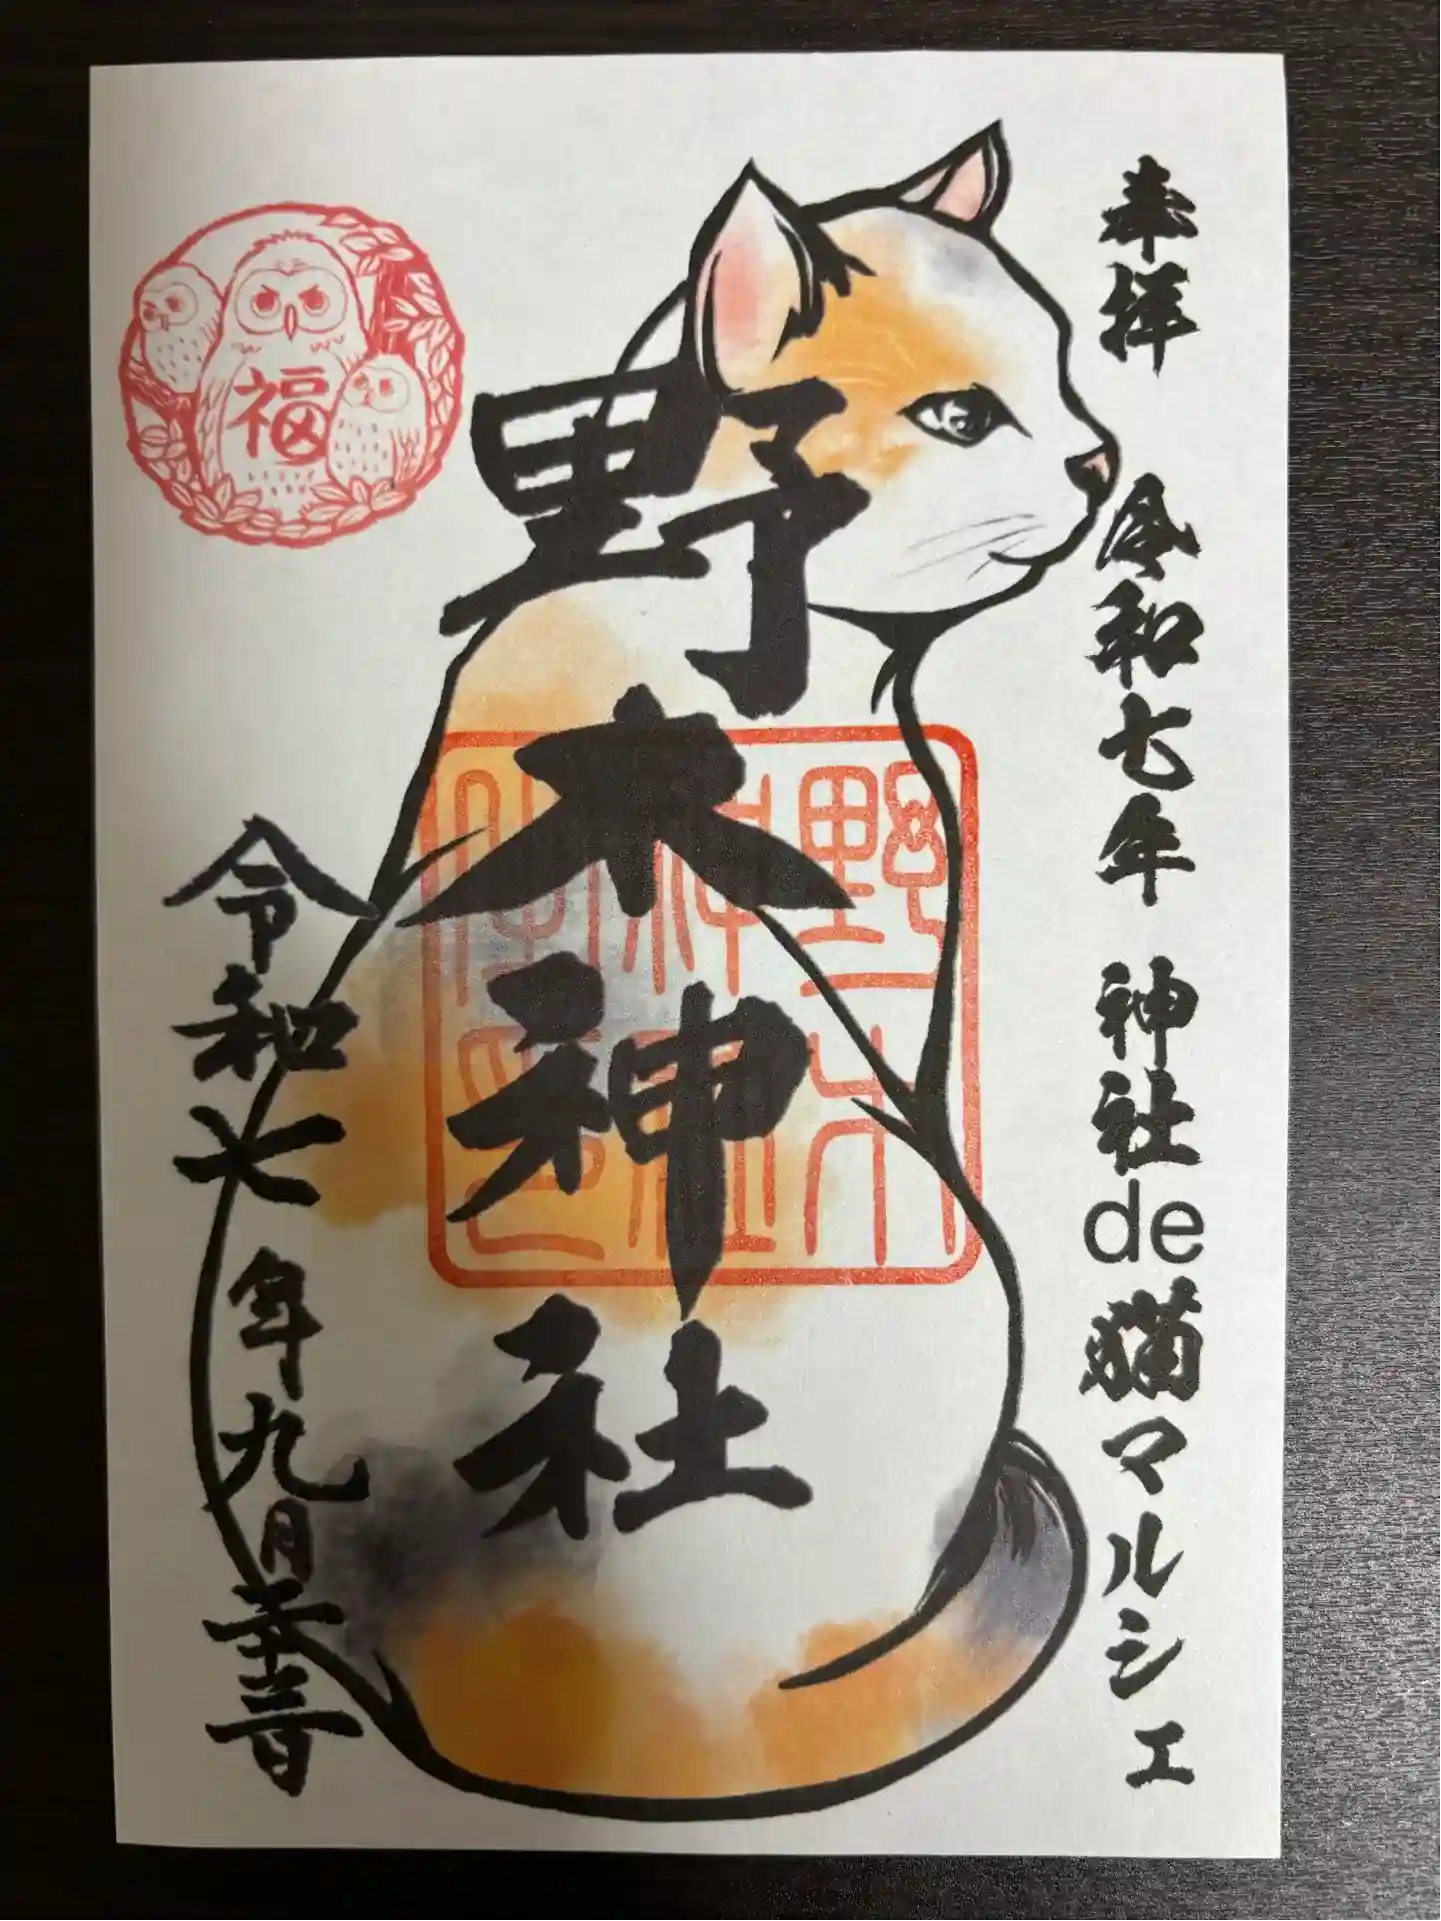 奉拝 令和七年 神社de猫マルシェ
野木神社
野木
神社
福
令和七年九月二十三日